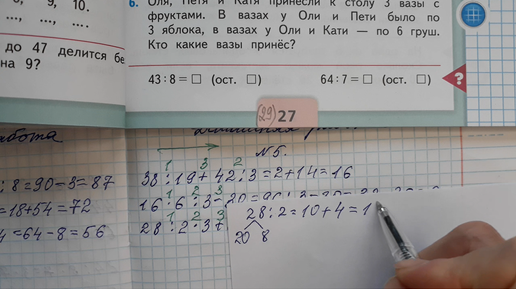 6. Оля, Петя и Катя принесли к столу 3 вазы с
фруктами. В вазах у Оли и Пети было по
3 яблока, в вазах у Оли и Кати — по 6 груш.
Кто какие вазы принёс?
9, 10.
..., ..., ....
до 47 делится бе
на 9?
43 : 8 = □ (ост. □) 64 : 7 = □ (ост. □)
?
(29) 27
абота
№5.
1 3 2
: 8 = 90 - 3 = 87
38 : 19 + 42 : 3 = 2 + 14 = 16
1 2 3
= 18 + 54 = 72
16 · 6 : 3
1 2 3
= 64 - 8 = 56
28 : 2 · 3 +
28 : 2 = 10 + 4 = 1
20 8